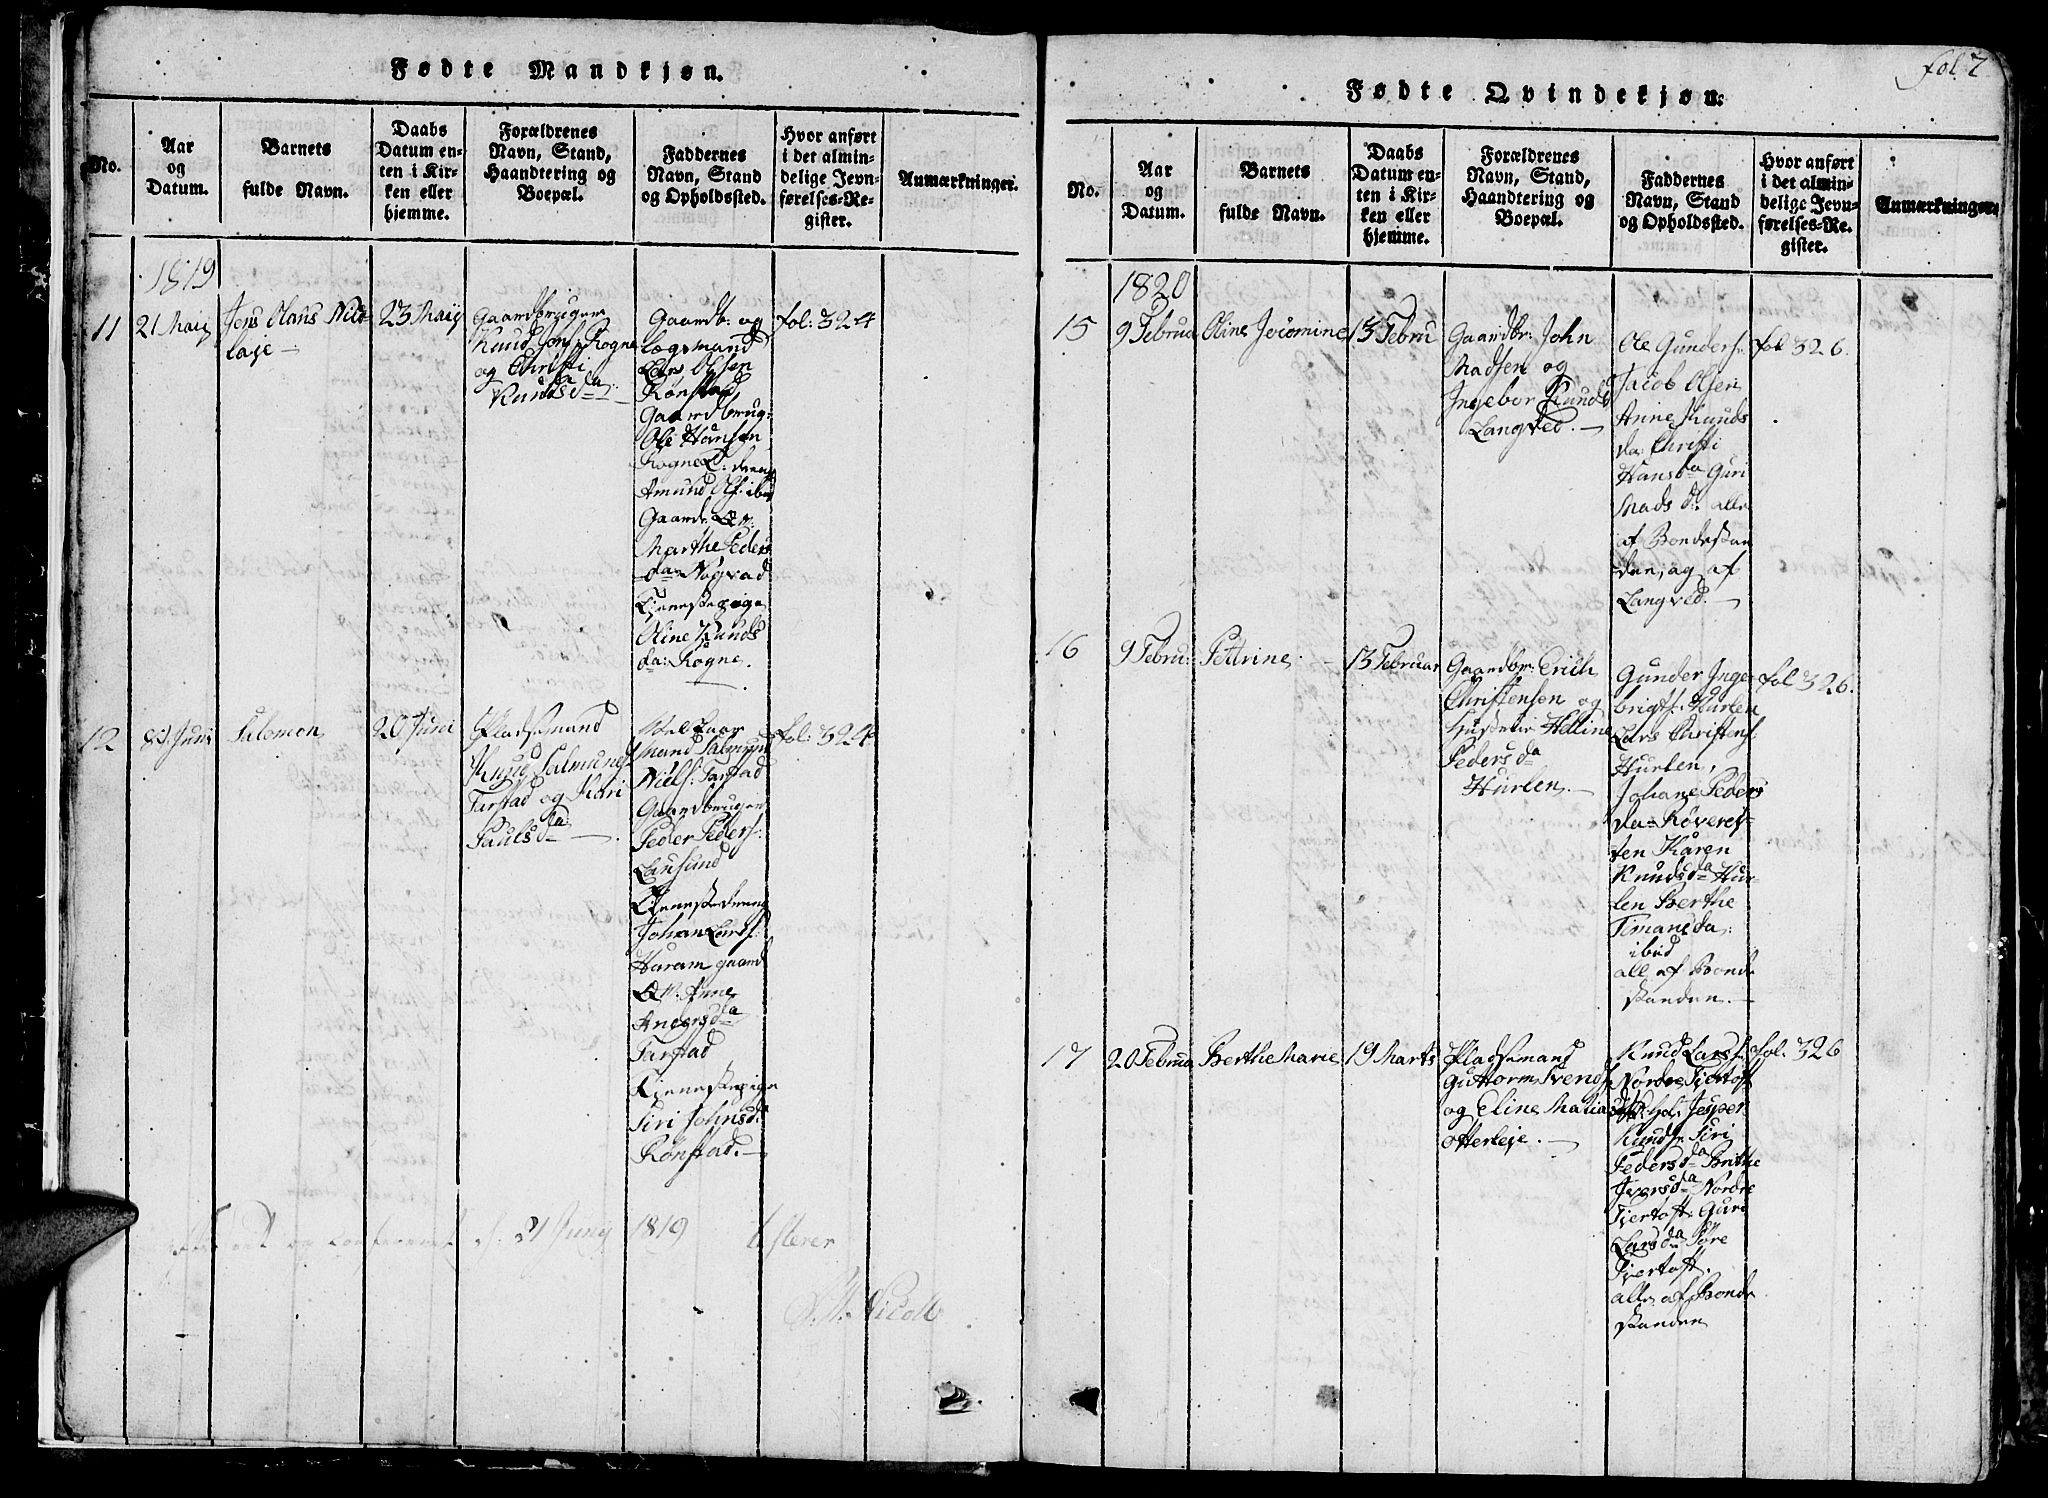 Fødte Mandkjøn.
No.
Aar
og
Datum.
Barnets
fulde Navn.
Daabs
Datum en-
ten i Kir-
ken eller
hjemme.
Forældrenes
Navn, Stand,
Haandtering og
Boepæl.
Faddernes
Navn, Stand
og Opholdssted.
Hvor anført
i det almin-
delige Jevn-
førelses-Re-
gister.
Anmærkninger.
1819
11
21 Maij
Jens Hans Nico-
laje
23 Maij
Gaardbruger
Knud Jons. Rogne
og Christi
Knudsda
Gaardb. og
Lægsmand
Lars Olsen
Rønstad
Gaardbrug:
Ole Hansen
Rogne
Amund Ols. ibid
Gaard
Marthe Peders
da: Nogvad
Tjenestepige
Oline Knuds
da: Rogne.
fol: 324
12
Juni
Salomon
20 Juni
Pladsemand
Knud Salmuns.
Farstad og Kari
Paulsda
mand Salmund
Niels. Farstad
Gaardbruger
Peder Peders.
Lausund
Tjenestedreng
Johan Lars.
Haram gaard
Qv. Anne
Andersda
Farstad
Tjenestepige
Siri Johnsd.
Rønstad.
fol: 324
og confereret d. 21 Juny 1819 testerer
Nicoll
fol. 7
Fødte Qvindekjøn.
No.
Aar
og
Datum.
Barnets
fulde Navn.
Daabs
Datum en-
ten i Kir-
ken eller
hjemme.
Forældrenes
Navn, Stand,
Haandtering og
Boepæl.
Faddernes
Navn, Stand
og Opholdssted.
Hvor anført
i det almin-
delige Jevn-
førelses-Re-
gister.
Anmærkninger.
1820
15
9 Februa
Oline Jocomine
13 Febru
Gaardbr: John
Madsen og
Ingebor Knuds
Langved.
Ole Gunders.
Jacob Olsen
Anne Knuds
da: Christi
Hansda Guri
Mads d. alle
af Bondestan
den, og af
Langved.
fol 326.
16
9 Febru:
Pettrine
13 Februar
Gaardbr: Erich
Christensen og
Hustrue Helline
Pedersda
Hurlen.
Gunder Inge
brigts. Hurlen
Lars Christens.
Hurlen,
Johane Peders
da: Røverej-
ten Karen
Knudsda Hur-
len Berthe
Timaneda:
ibid
alle af Bonde
standen.
fol 326.
17
20 Februa
Berthe Marie
19 Marts
Pladsemand
Guttorm Svends.
og Eline Matia
otterleje.
Knud Lars.
Nordre Fjertoft
Jesper
Knuds. Siri
Pedersda Brithe
Iversda Nordre
Fjertoft. Guri
Larsda Søre
Fjertoft.
alle af Bonde
standen
fol. 326